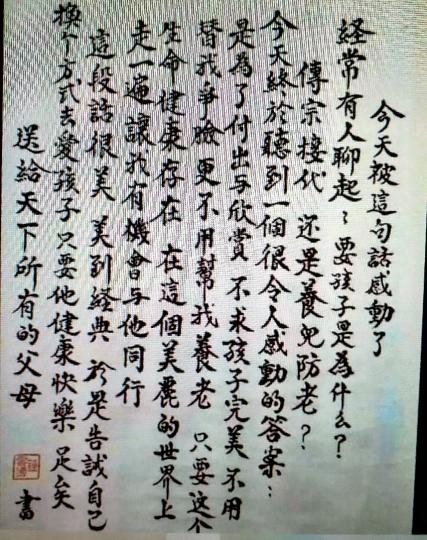 今天被這句話感動了
經常有人聊起：要孩子是為什么？
傳宗接代 還是養兒防老？
今天終於聽到一個很令人感動的答案：
是為了付出与欣賞 不求孩子完美 不用
替我爭臉 更不用幫我養老 只要这个
生命健康存在 在這個美麗的世界上
走一遍 讓我有機會与他同行
這段話很美 美到經典 於是告誡自己
換个方式去愛孩子 只要他健康快樂 足矣
送給天下所有的父母 書